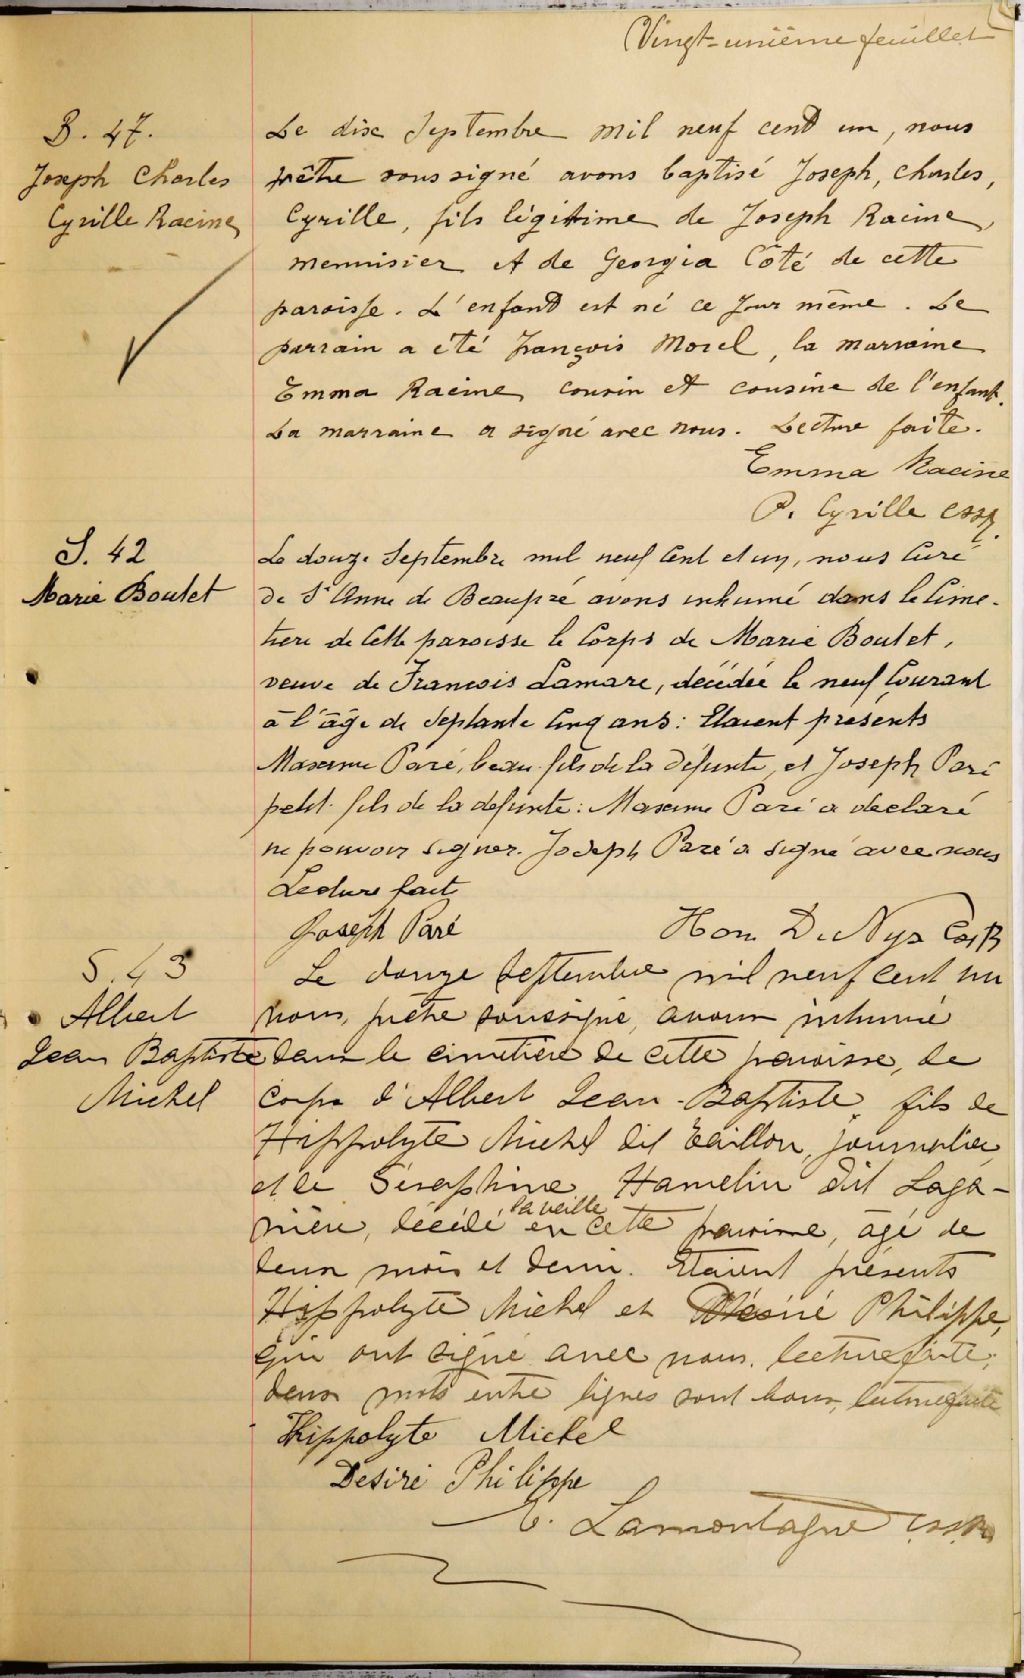 Vingt-unième feuillet
B. 47.
Joseph Charles
Cyrille Racine
Le dix Septembre mil neuf cent un, nous
prêtre soussigné avons baptisé Joseph, Charles,
Cyrille, fils légitime de Joseph Racine,
menuisier et de Georgia Côté de cette
paroisse. L'enfant est né ce jour même. Le
parrain a été François Morel, la marraine
Emma Racine, cousin et cousine de l'enfant.
La marraine a signé avec nous. Lecture faite.
Emma Racine
P. Cyrille CSSR.
S. 42
Marie Boulet
Le douze Septembre mil neuf Cent et un, nous Curé
de Ste Anne de Beaupré avons inhumé dans le Cime-
tière de Cette paroisse le Corps de Marie Boulet,
veuve de Francois Lamare, décédée le neuf Courant
à l'âge de Septante Cinq ans: Etaient présents
Maxime Paré, beau-fils de la défunte, et Joseph Paré
petit-fils de la defunte: Maxime Paré a declaré
ne pouvoir signer. Joseph Paré a signé avec nous
Lecture fait
Joseph Paré
Hon. De Nys CssR
S. 43
Albert
Jean Baptiste
Michel
Le douze septembre mil neuf cent un
nous, prêtre soussigné, avons inhumé
dans le cimetière de cette paroisse, de
corps d'Albert Jean-Baptiste, fils de
Hippolyte Michel dit Taillon, journalier
et de Séraphine Hamelin dit Laga-
nière, décédé la veille en cette paroisse, âgé de
deux mois et demi. Etaient présents
Hippolyte Michel et Désiré Philippe,
qui ont signé avec nous. lecture faite.
deux mots entre lignes sont bons, lecture faite
Hippolyte Michel
Désiré Philippe
E. Lamontagne C.SS.R.